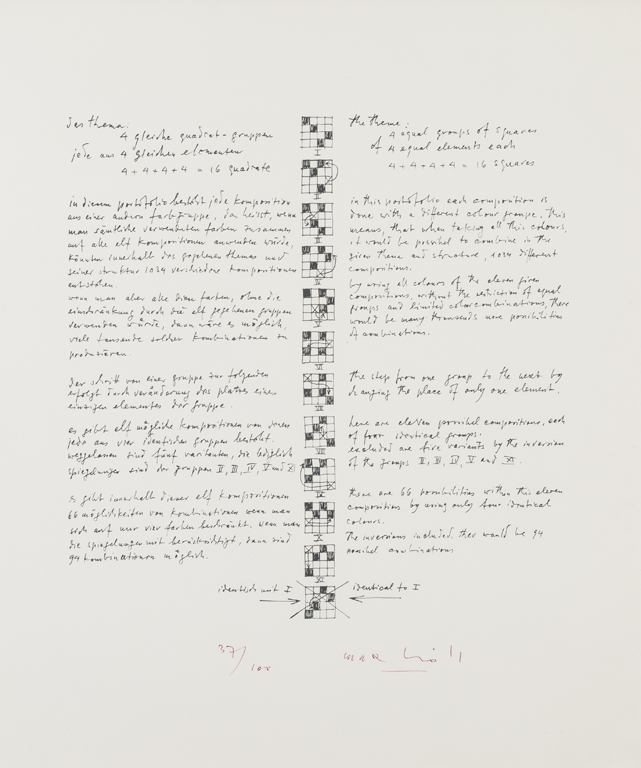 das thema:
4 gleiche quadrat-gruppen
jede aus 4 gleichen elementen
4 + 4 + 4 + 4 = 16 quadrate
in diesem portofolio besteht jede komposition
aus einer andren farbgruppe, das heisst, wenn
man sämtliche verwendeten farben zusammen
auf alle elf kompositionen anwenden würde,
könnten innerhalb des gegebenen themas und
seiner struktur 1024 verschiedene kompositionen
entstehen.
wenn man aber alle diese farben, ohne die
einschränkung durch die elf gegebenen gruppen
verwenden würde, dann wäre es möglich,
viele tausende solcher kombinationen zu
produzieren.
der schritt von einer gruppe zur folgenden
erfolgt durch veränderung des platzes eines
einzigen elementes der gruppe.
es gibt elf mögliche kompositionen von denen
jede aus vier identischen gruppen besteht.
weggelassen sind fünf varianten, die lediglich
spiegelungen sind der gruppen II, III, IV, V und XI
es gibt innerhalb dieser elf kompositionen
66 möglichkeiten von kombinationen wenn man
sich auf nur vier farben beschränkt. wenn man
die spiegelungen mit berücksichtigt, dann sind
94 kombinationen möglich.
I
II
III
IV
V
VI
VII
VIII
IX
X
XI
the theme:
4 equal groups of squares
of 4 equal elements each
4 + 4 + 4 + 4 = 16 squares
in this portofolio each composition is
done with a different colour group. this
means, that when taking all this colours,
it would be possibel to combine in the
given theme and structure, 1024 different
compositions.
by using all colours of the eleven given
compositions without the restriction of equal
groups and limited colour combinations, there
would be many thousends more possibilities
of combinations.
the step from one group to the next by
changing the place of only one element.
here are eleven possibel compositions, each
of four identical groups.
excluded are five variants by the inversion
of the groups II, III, IV, V and XI.
there are 66 possibilities within this eleven
compositions by using only four identical
colours.
The inversions included, ther would be 94
possibel combinations
identisch mit I
identical to I
37/100
max bill